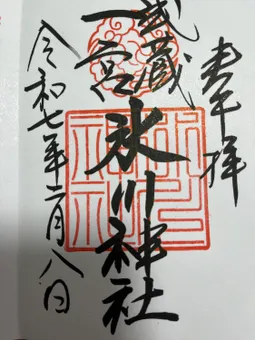 奉拝
武蔵
一宮
氷川神社
令和七年二月八日